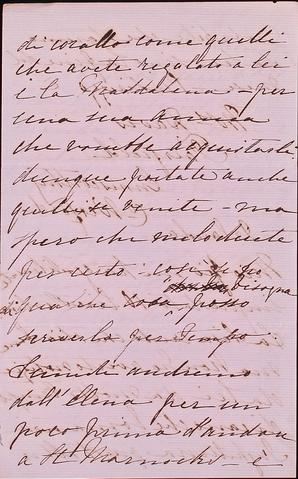 di corallo come quelli
che avete regalato a lei
e la Maddalena – per
una sua Amica
che vorrebbe acquistarli
dunque portate anche
quelli se venite – ma
spero che me lo direte
per certo: così se ho bisogna
di qua che cosa posso
scriverlo per tempo
Lunedì andremo
dall'Elena per un
poco prima d'andare
a St Marnocks – e